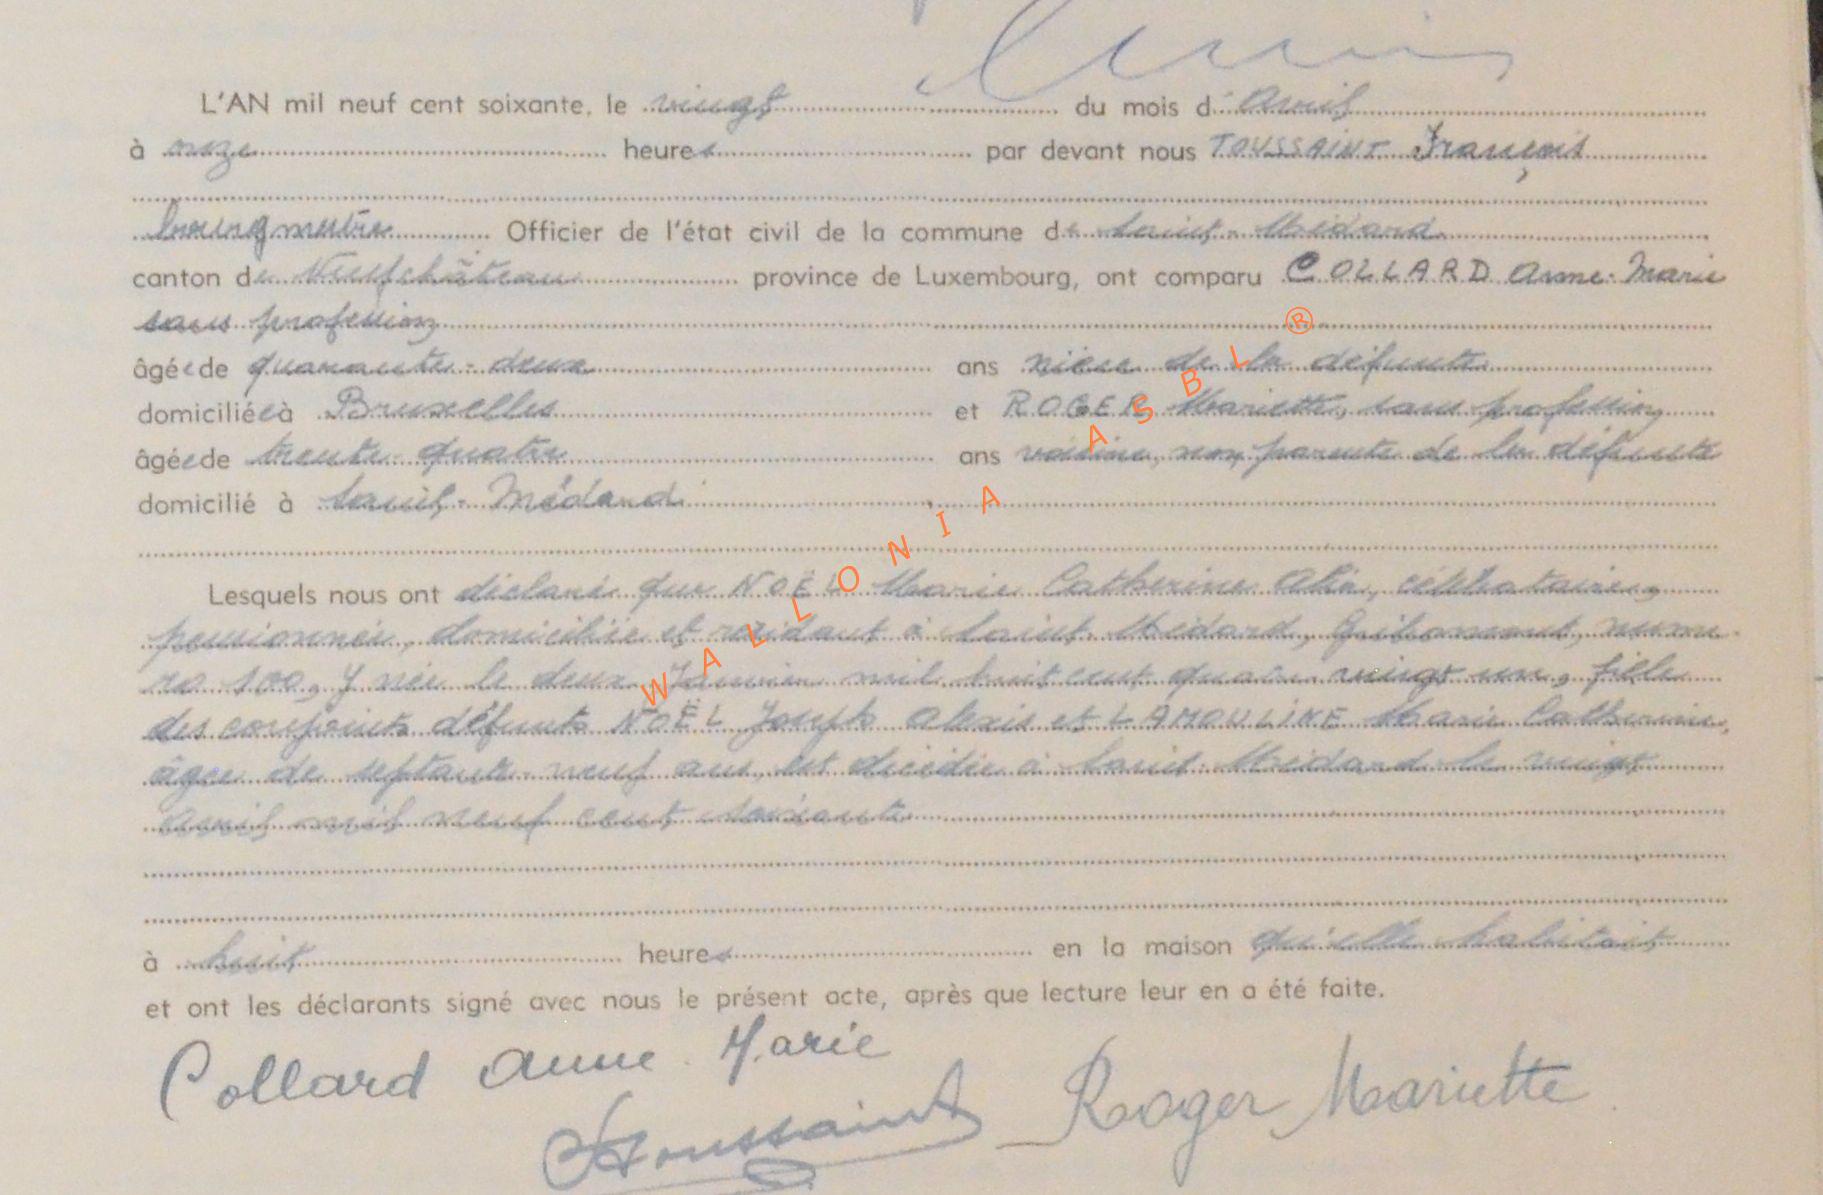 L'AN mil neuf cent soixante, le vingt du mois d' Avril
à onze heures par devant nous TOUSSAINT François
bourgmestre Officier de l'état civil de la commune de Saint-Médard
canton de Neufchâteau province de Luxembourg, ont comparu COLLARD Anne-Marie
sans profession
âgée de quarante-deux ans nièce de la défunte
domiciliée à Bruxelles et ROGER Mariette, sans profession
âgée de trente-quatre ans voisine, non parente de la défunte
domicilié à Saint-Médard
Lesquels nous ont déclaré que NOËL Marie Catherine, célibataire,
pensionnée, domiciliée et résidant à Saint-Médard, numé-
ro 100, y née le deux Janvier mil huit cent quatre vingt un, fille
des conjoints défunts NOËL Joseph Alexis et LAMOULINE Marie Catherine,
âgée de septante-neuf ans, est décédée à Saint-Médard le vingt
avril mil neuf cent soixante
à huit heures en la maison qu'elle habitait
et ont les déclarants signé avec nous le présent acte, après que lecture leur en a été faite.
Collard Anne-Marie
Toussaint
Roger Mariette
WALLONIA ASBL ®